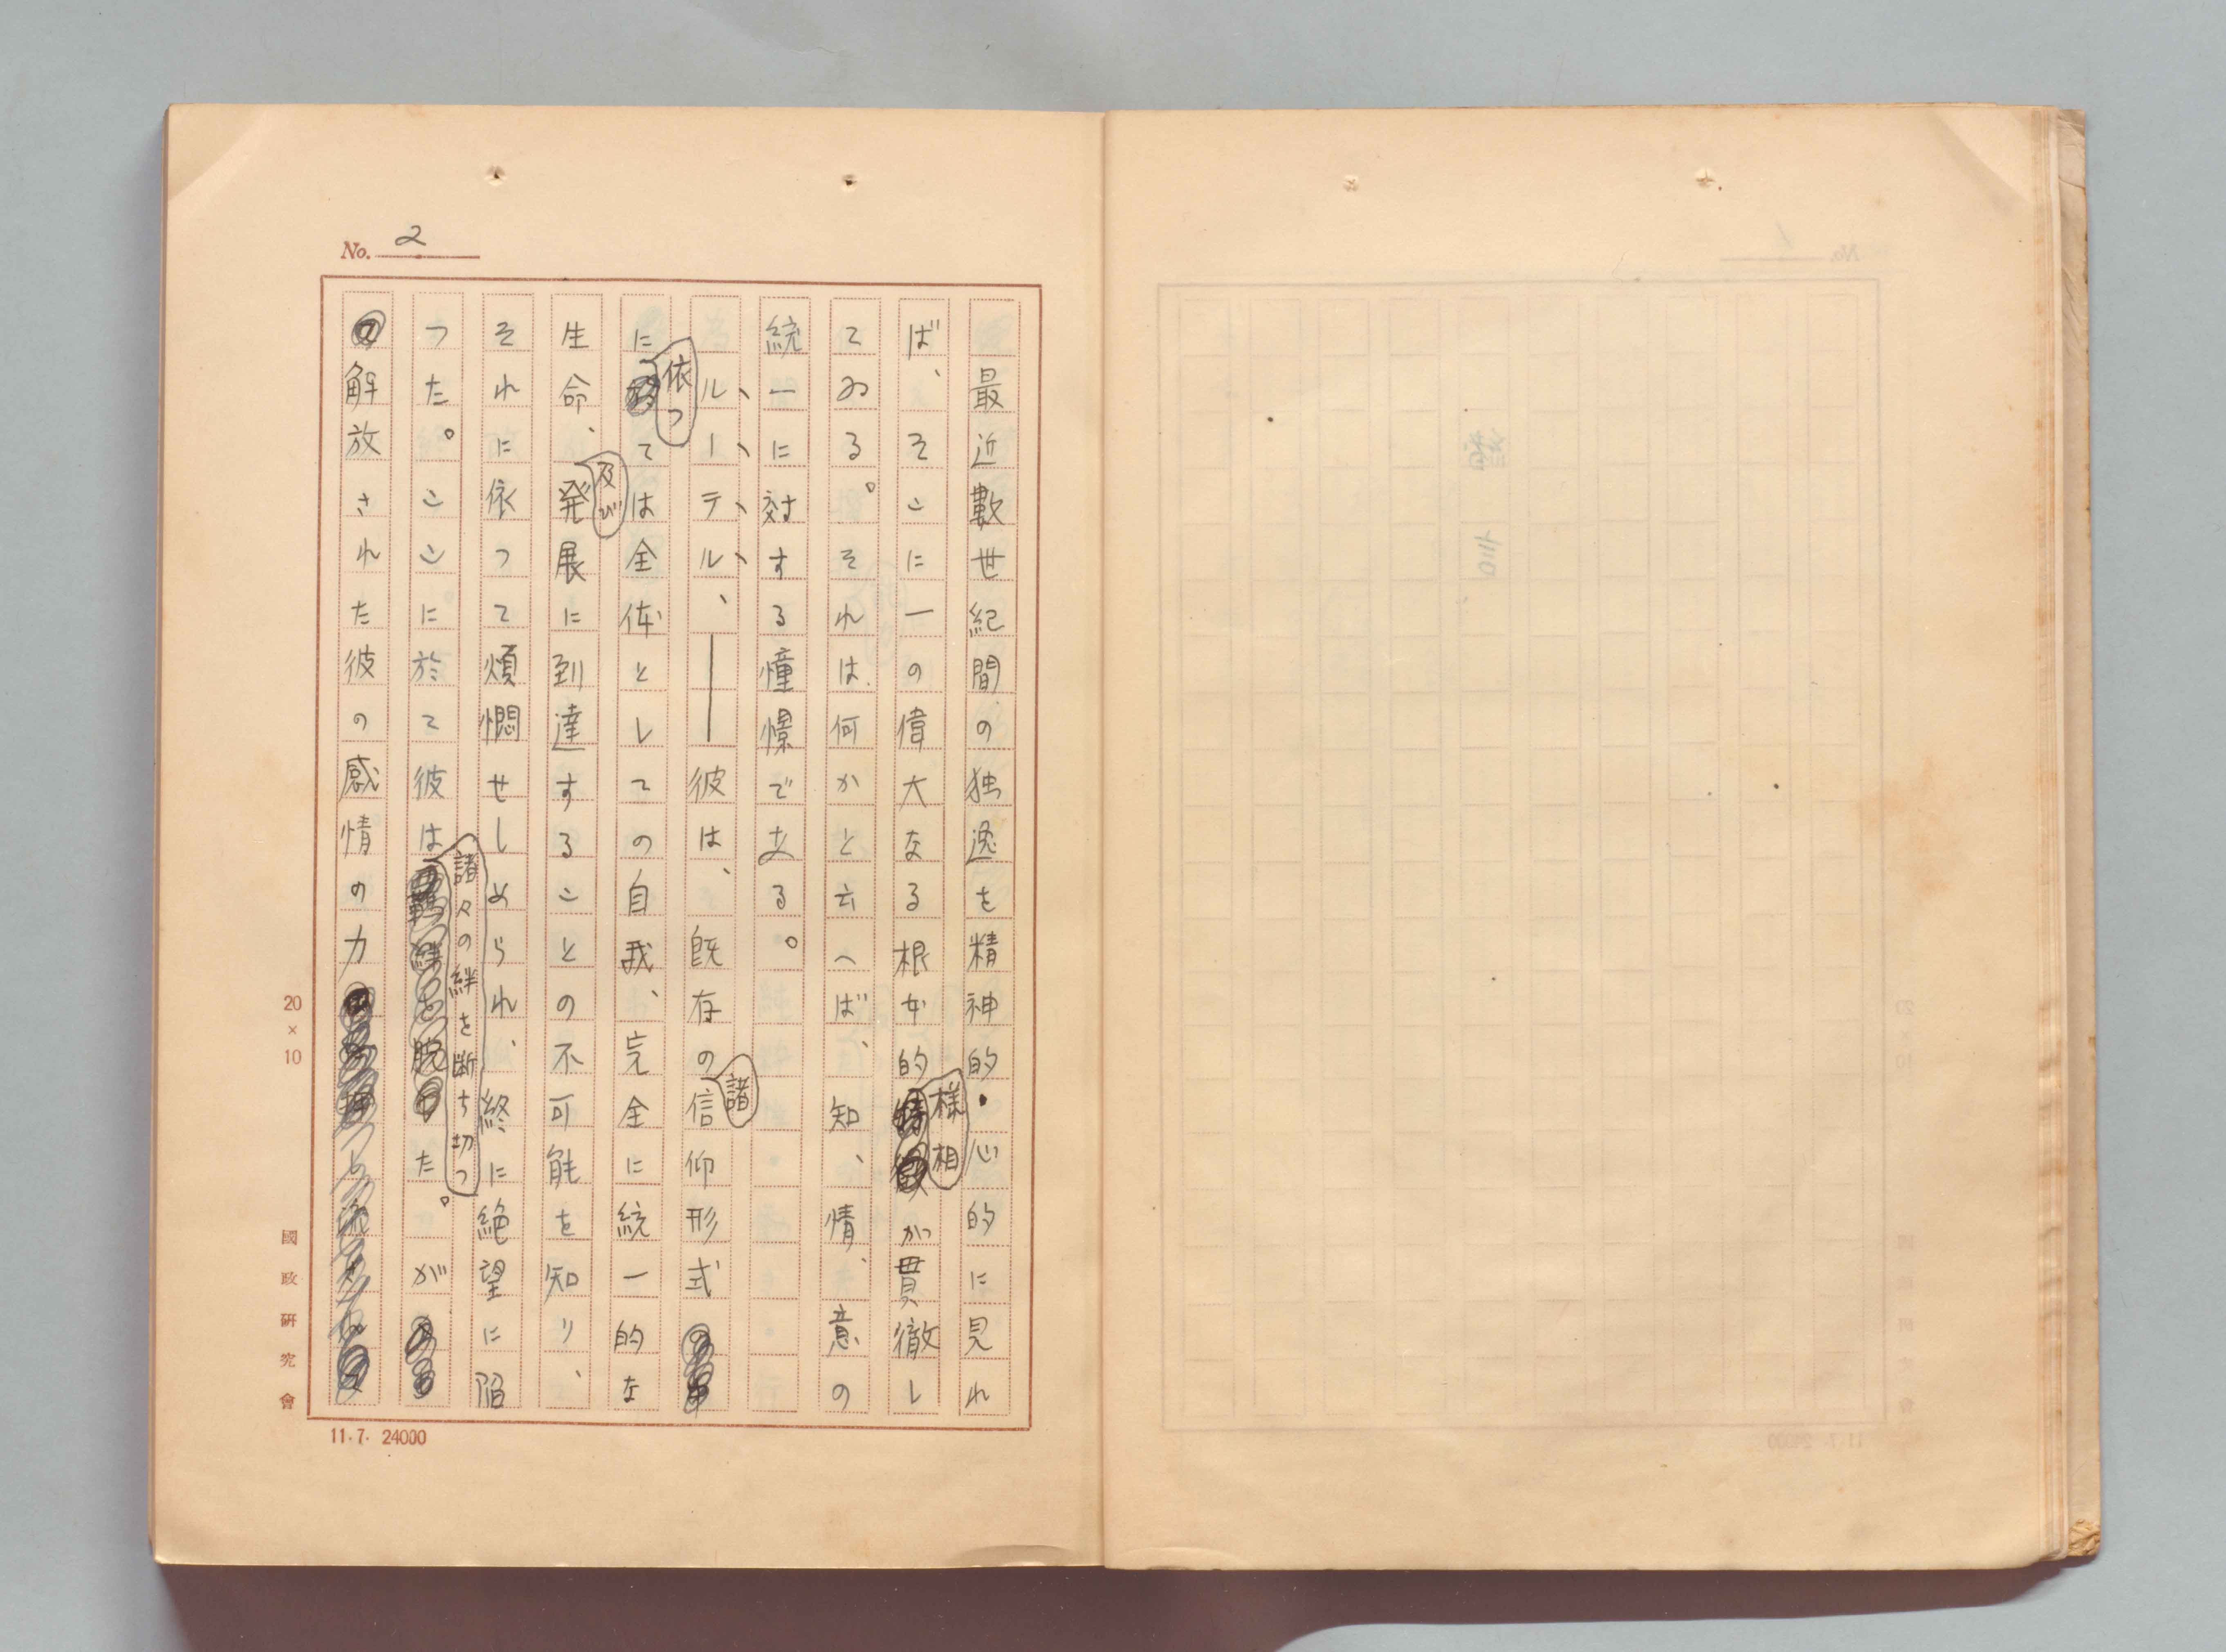 No. 2
最近數世紀間の独逸を精神的・心的に見れ
ば、そこに一の偉大なる根本的様相が貫徹し
てゐる。それは何かと云へば、知、情、意の
統一に対する憧憬である。
ルーテル、——彼は、既存の諸信仰形式
に依つては全体としての自我、完全に統一的な
生命、及び発展に到達することの不可能を知り、
それに依つて煩悶せしめられ、終に絶望に陥
つた。こゝに於て彼は諸々の絆を断ち切つた。が
解放された彼の感情の力
20×10
國政研究會
11.7. 24000